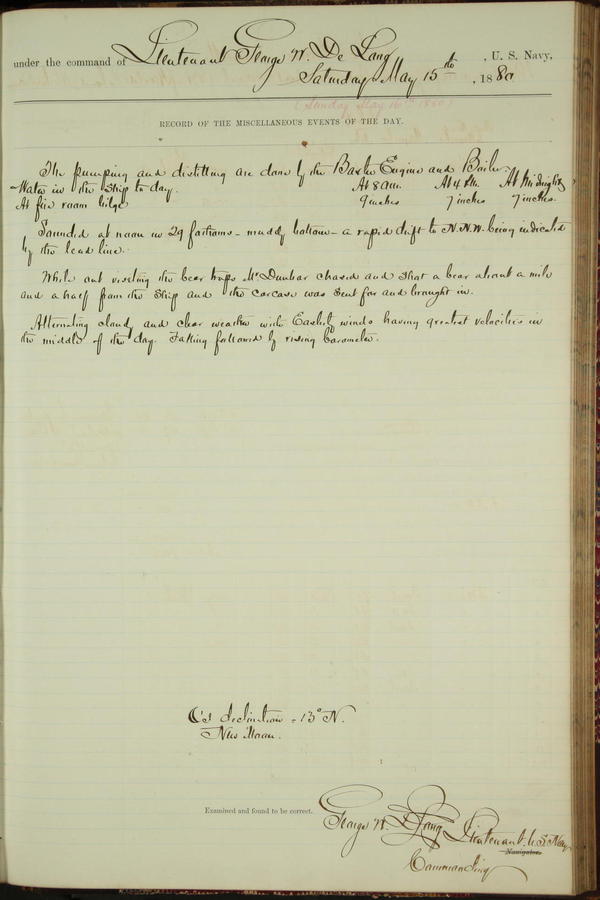 under the command of Lieutenant George W. De Long , U. S. Navy,
Saturday May 15th , 1880
(Sunday May 16th 1880)
RECORD OF THE MISCELLANEOUS EVENTS OF THE DAY.
The pumping and distilling are done by the Baxter Engine and Boiler.
Water in the Ship to day. At 8 a.m. At 4 P.M. At Midnight
At fire room bilge 9 inches 7 inches 7 inches.
Sounded at noon in 29 fathoms - muddy bottom - a rapid drift to N.N.W. being indicated
by the lead line.
While out visiting the bear traps Mr Dunbar chased and shot a bear about a mile
and a half from the Ship and the carcase was sent for and brought in.
Alternating cloudy and clear weather with Easterly winds having greatest velocities in
the middle of the day. Falling followed by rising barometer.
☾'s declination = 13° N.
New Moon.
Examined and found to be correct.
George W. De Long Lieutenant U.S. Navy
Navigator.
Commanding